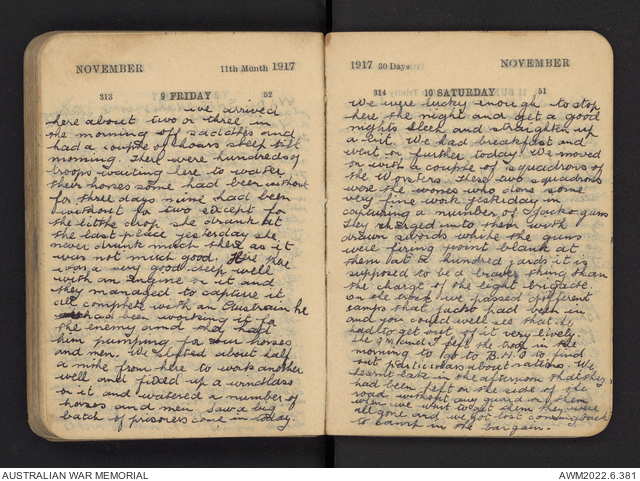 NOVEMBER 11th Month 1917
313 9 FRIDAY 52
we arrived
here about two or three in
the morning off saddled and
had a couple of hours sleep till
morning. There were hundreds of
troops waiting here to water
their horses some had been without
for three days mine had been
without for two except for
the little drop she drank at
the last place yesterday she
never drank much there as it
was not much good. Here there
was a very good deep well
with an engine on it and
they managed to capture it
all complete with an Austrian he
had been working it for
the enemy and had
him pumping for our horses
and men. We shifted about half
a mile from here to work another
well and fixed up a windlass
on it and watered a number of
horses and men saw a big
batch of prisoners come in today
1917 30 Days NOVEMBER
314 10 SATURDAY 51
We were lucky enough to stop
here the night and get a good
nights sleep and straighten up
a bit. We had breakfast and
went on further today. We moved
on with a couple of squadrons of
the Worsters. These two squadrons
were the ones who done some
very fine work yesterday in
capturing a number of Jacko guns
They charged into them with
drawn swords while the guns
were firing point blank at
them at a hundred yards it is
supposed to be a braver thing than
the charge of the light brigade
on the track we passed different
camps that Jacko had been in
and you could well see that he
had to get out of it very lively.
I left the troop in the
morning to go to B.H.Q to find
out particulars about rations. We
learnt late in the afternoon that they
had been left on the side of the
road without any guard on them
when we went to get them they were
all gone and we got lost coming back
to camp in the bargain.
AUSTRALIAN WAR MEMORIAL
AWM2022.6.381